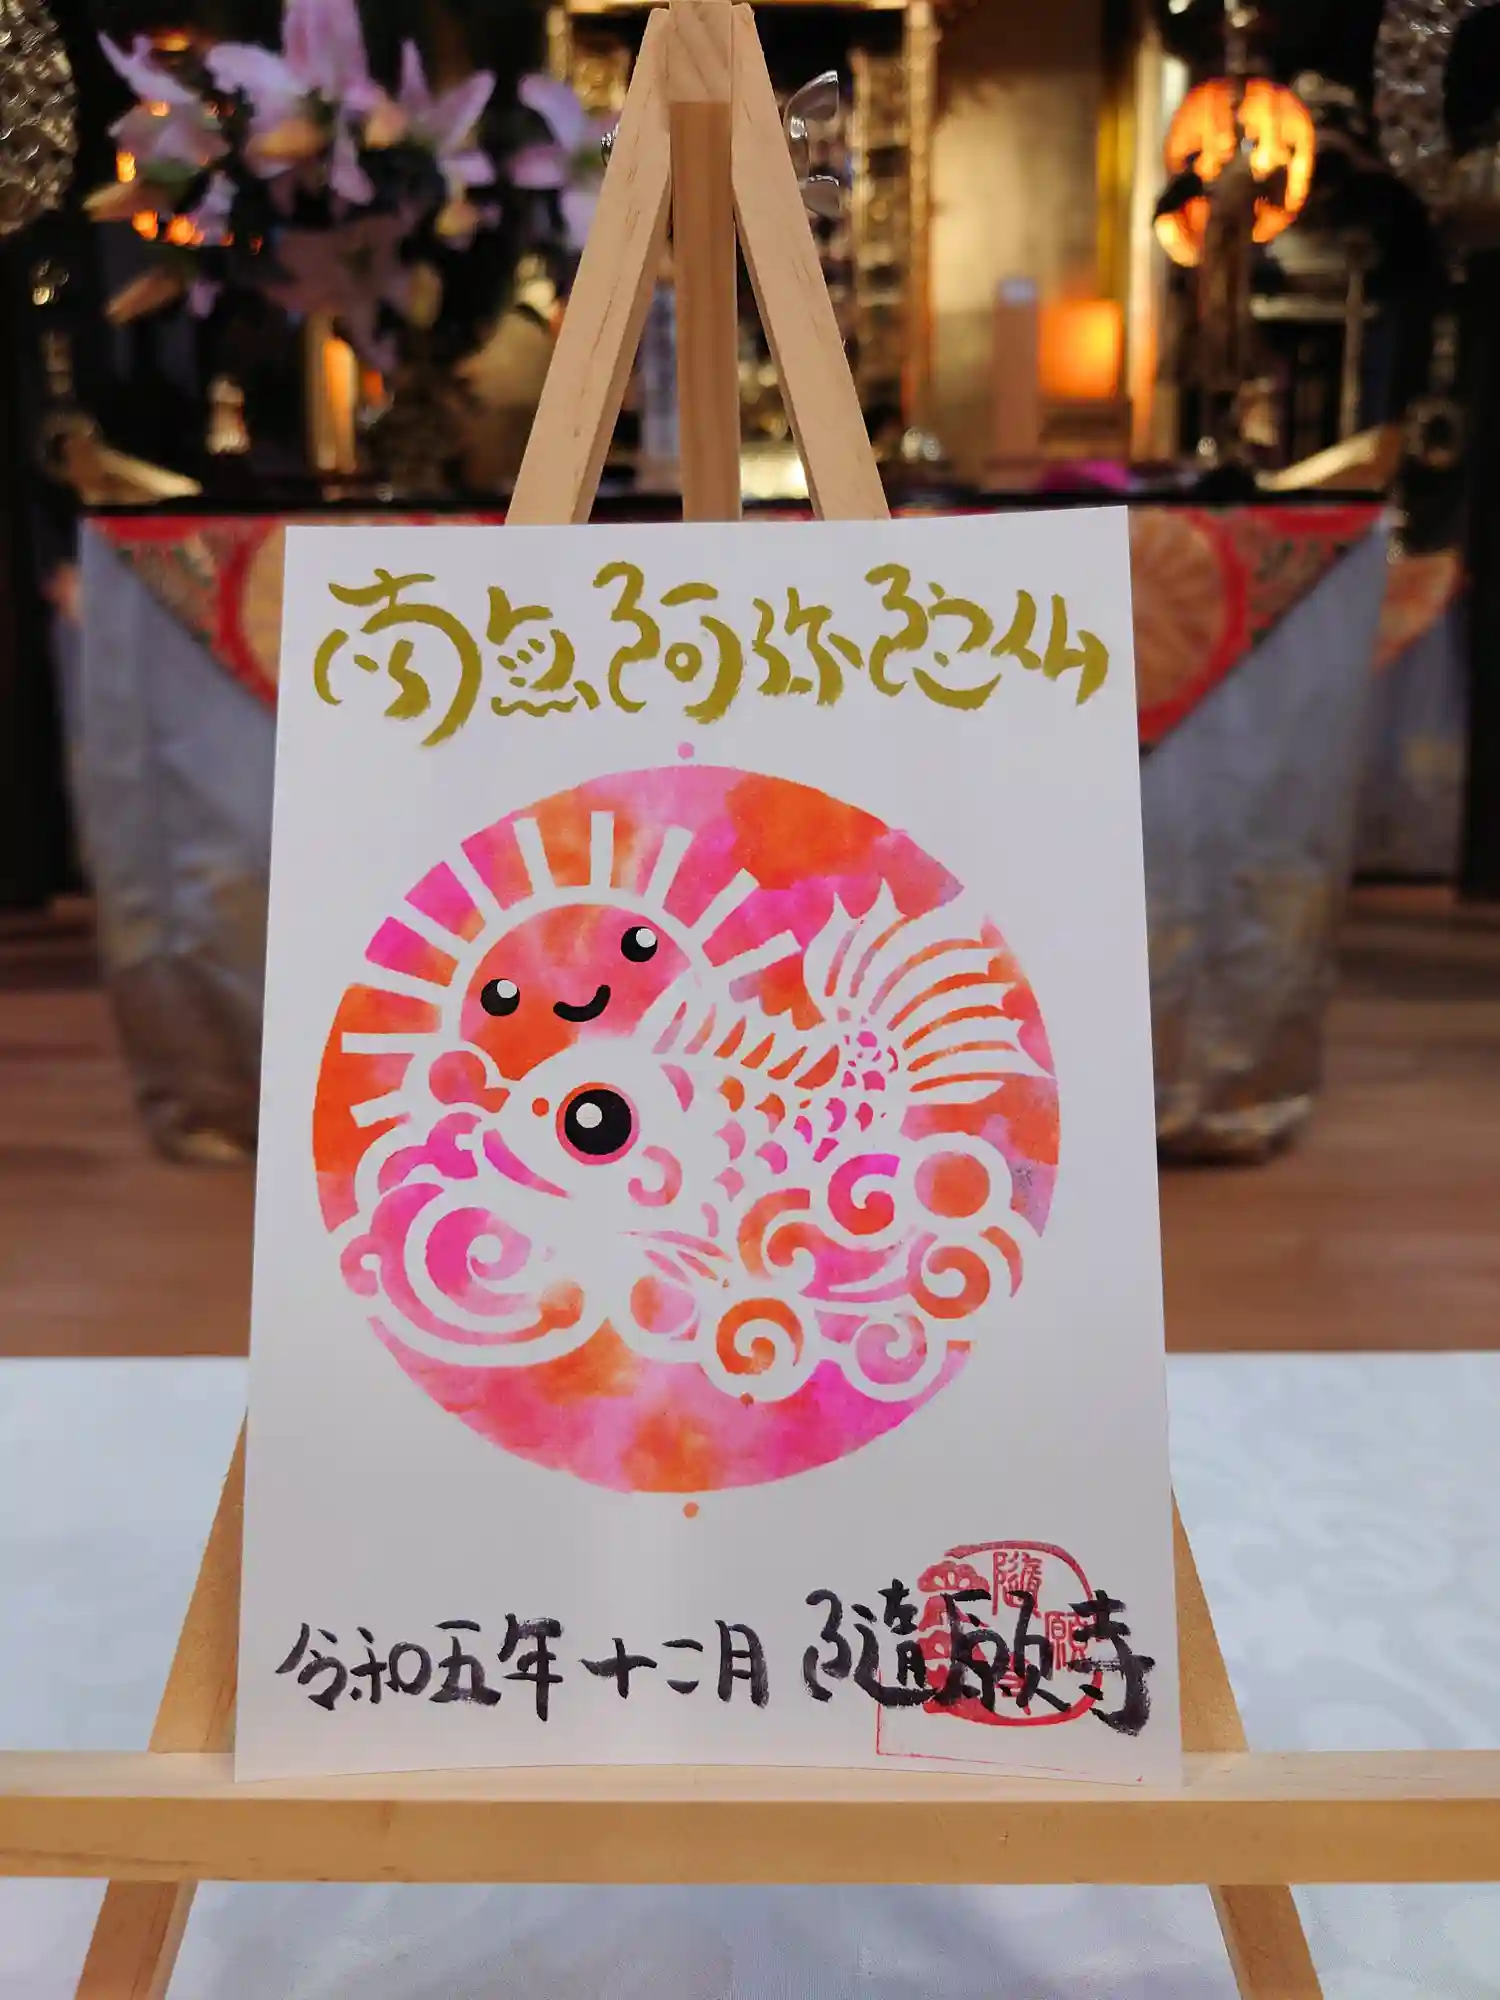 南無阿弥陀仏
令和五年十二月 隨願寺
隨願寺